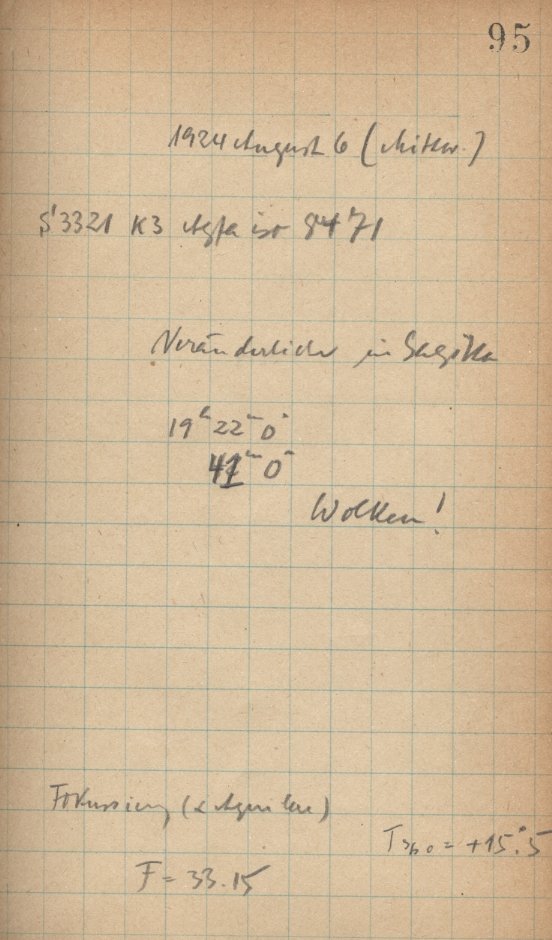 95
1924 August 6 (Mittw.)
S 3321 K3 Agfa iso 8471
Veränderliche in Sagitta
19ʰ 22ᵐ 0ˢ
41ᵐ 0ˢ
Wolken!
Fokussierung (α Aquilae)
T₃₆₀ = +15°.5
F = 33.15